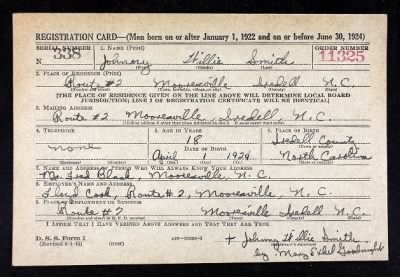 REGISTRATION CARD—(Men born on or after January 1, 1922 and on or before June 30, 1924)
SERIAL NUMBER 1. NAME (Print) ORDER NUMBER
338 Johnny Willie Smith 11325
(First) (Middle) (Last)
2. PLACE OF RESIDENCE (Print)
Route #2 Mooresville Iredell N.C.
(Number and street) (Town, township, village, or city) (County) (State)
[THE PLACE OF RESIDENCE GIVEN ON THE LINE ABOVE WILL DETERMINE LOCAL BOARD
JURISDICTION; LINE 2 OF REGISTRATION CERTIFICATE WILL BE IDENTICAL]
3. MAILING ADDRESS
Route #2 Mooresville, Iredell N.C.
[Mailing address if other than place indicated on line 2. If same insert word same]
4. TELEPHONE 5. AGE IN YEARS 6. PLACE OF BIRTH
18 Iredell County
none DATE OF BIRTH (Town or county)
April 1 1924 North Carolina
(Exchange) (Number) (Mo.) (Day) (Yr.) (State or country)
7. NAME AND ADDRESS OF PERSON WHO WILL ALWAYS KNOW YOUR ADDRESS
Black, Mooresville, N.C.
8. EMPLOYER'S NAME AND ADDRESS
Floyd Cook, Route #2, Mooresville, N.C.
9. PLACE OF EMPLOYMENT OR BUSINESS
Route #2 Mooresville Iredell N.C.
(Number and street or R. F. D. number) (Town) (County) (State)
I AFFIRM THAT I HAVE VERIFIED ABOVE ANSWERS AND THAT THEY ARE TRUE.
D. S. S. Form 1 + Johnny Willie Smith
by: Mary Ethel Goodnight